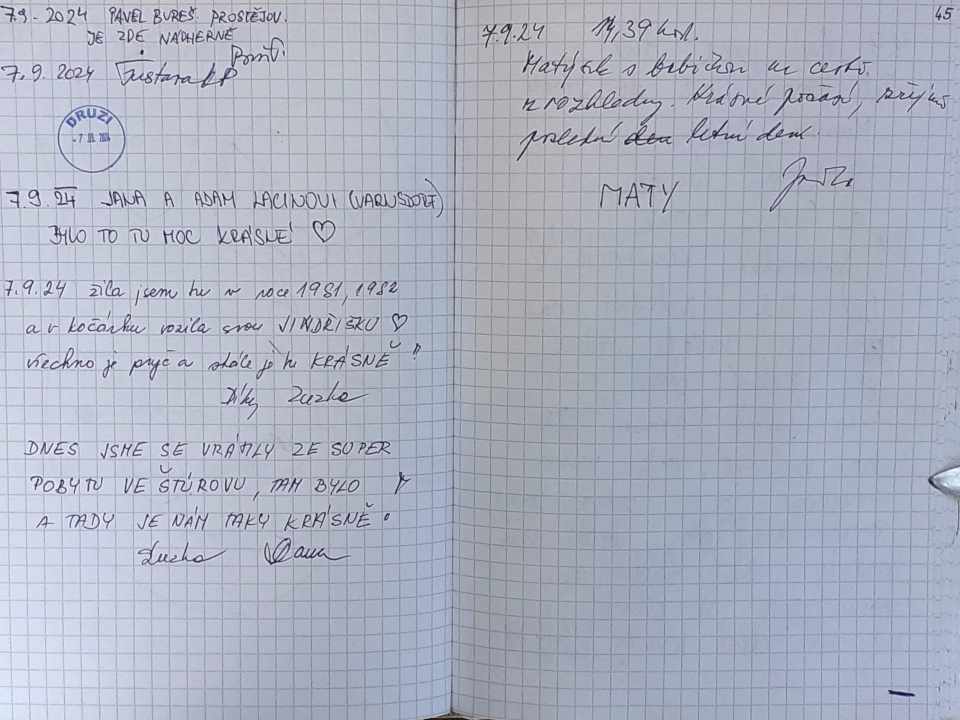 7.9-2024 PAVEL BUREŠ. PROSTĚJOV.
JE ZDE NÁDHERNĚ
7.9.2024
DRUZI
7.9.24 JANA A ADAM LACINOVI (VARNSDORF)
BYLO TO TU MOC KRÁSNÉ ♡
7.9.24 žila jsem tu v roce 1981, 1982
a v kočárku vozila svou JINDŘIŠKU ♡
všechno je pryč a stále je tu KRÁSNĚ
Díky Zuzka
DNES JSME SE VRÁTILY ZE SUPER
POBYTU VE ŠTÚROVU, TAM BYLO
A TADY JE NÁM TAKY KRÁSNĚ.
Zuzka
45
7.9.24 14,39 hod.
Matýsek s babičkou na cestě
z rozhledny. Krásné počasí,
poslední den letní den.
MATY